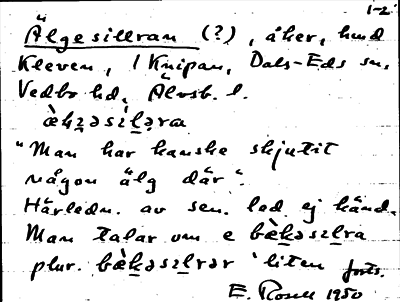 1-2
Älgesillran (?), åker, hmd
Kleven, / Knipan, Dals-Eds sn,
Vedbo hd, Älvsb. l.
"Man har kanske skjutit
någon älg där".
Härledn. av sen. led ej känd.
Man talar om e bæ̀kəszlra
plur. bæ̀kəszlrər 'liten forts.
E. Rosell 1950